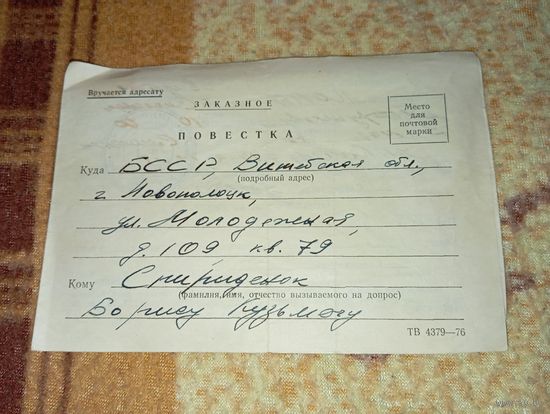 Вручается адресату
ЗАКАЗНОЕ
Место
для
почтовой
марки
ПОВЕСТКА
Куда БССР, Витебская обл,
(подробный адрес)
г. Новополоцк,
ул. Молодежная,
д. 109 кв. 79
Кому Спириденок
(фамилия, имя, отчество вызываемого на допрос)
Борису Кузьмичу
ТВ 4379—76